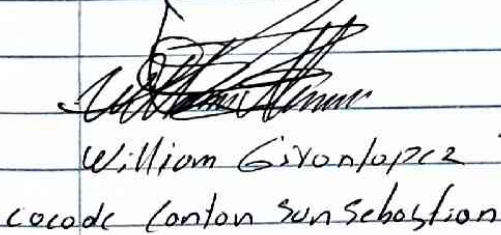 William Gironlopez
cocode Canton San Sebastian